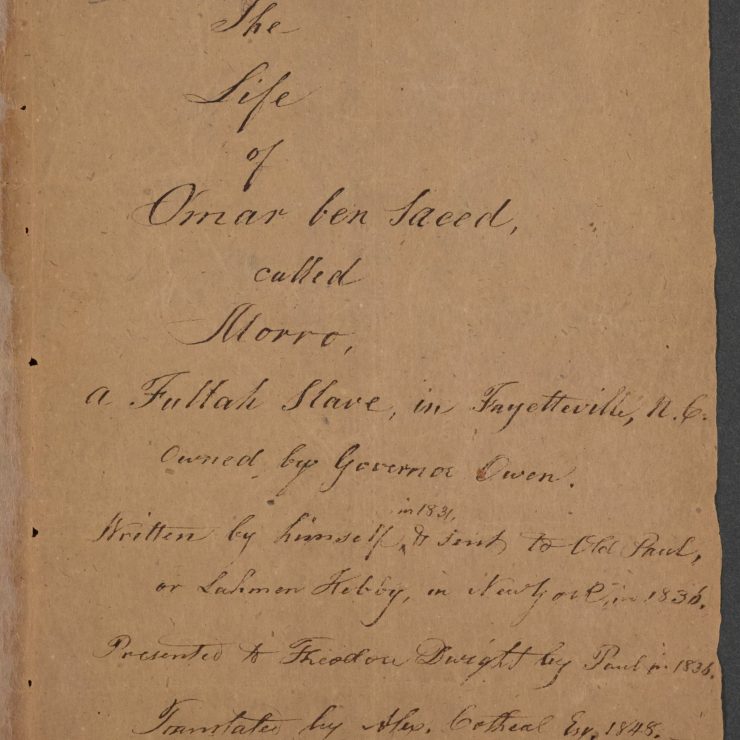 The
Life
of
Omar ben Saeed,
called
Morro,
a Fullah Slave, in Fayetteville, N.C.
owned by Governor Owen.
in 1831,
Written by himself & sent to Old Paul,
or Lahmen Kebby, in New York, in 1836.
Presented to Theodore Dwight by Paul in 1836.
Translated by Alex. Cotheal Esq. 1848.